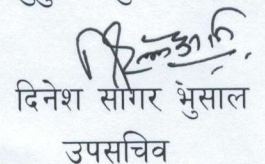 दिनेश सागर भुसाल
उपसचिव